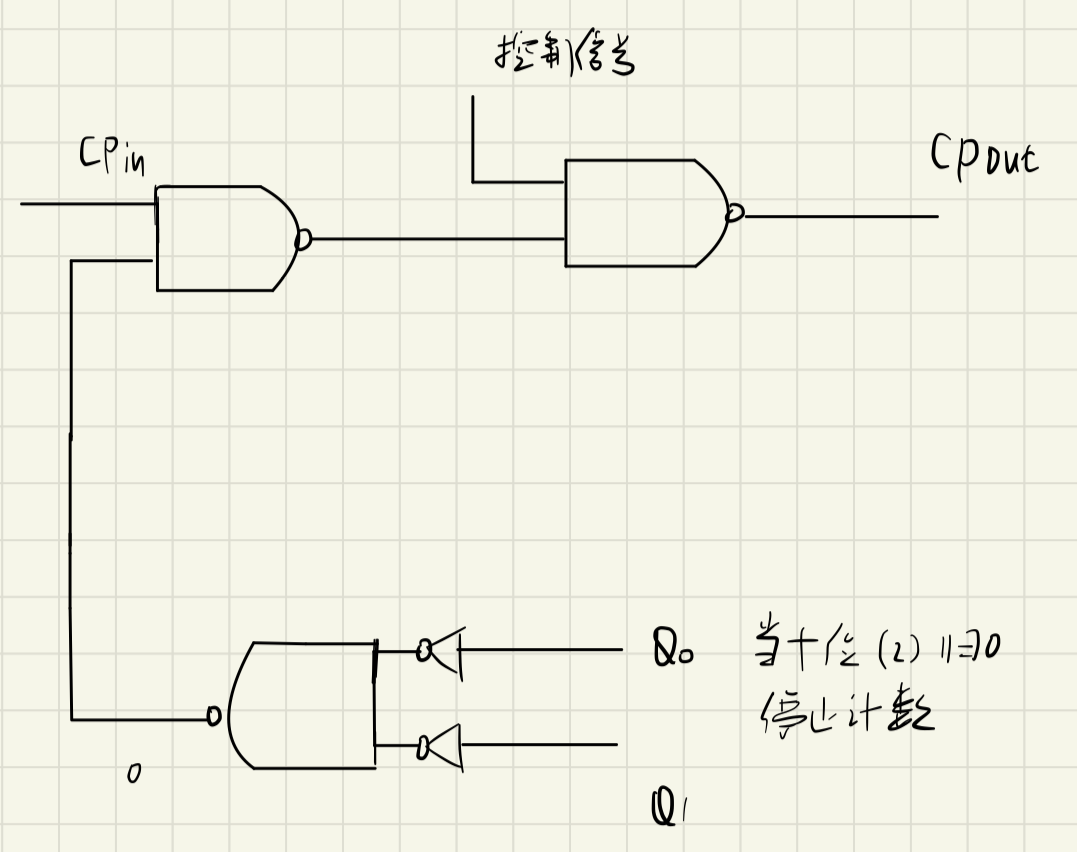 控制信号
CPin
CPout
Q0
当十位(2)
停止计数
0
Q1